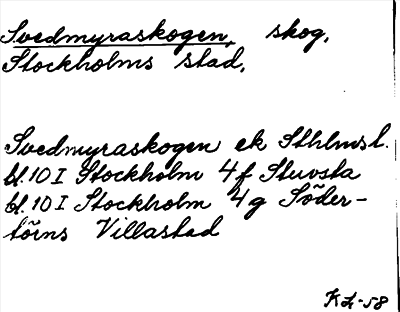 Svedmyraskogen, skog,
Stockholms stad.
Svedmyraskogen ek Sthlmsl.
bl. 10 I Stockholm 4f Stuvsta
bl. 10 I Stockholm 4g Söder-
törns Villastad
-58